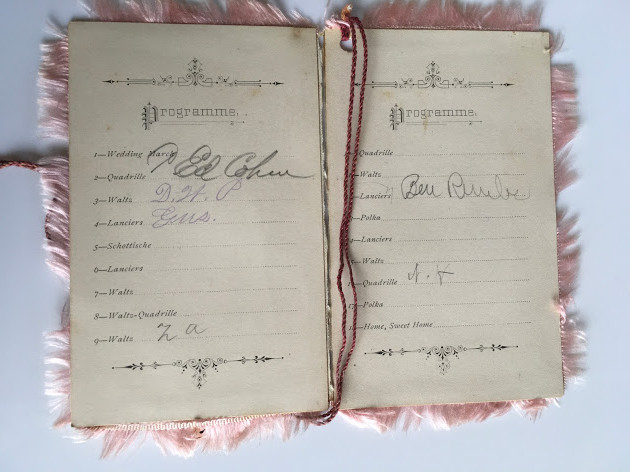 Programme.
1—Wedding March
2—Quadrille Ed Cohen
3—Waltz D.H. P
4—Lanciers Gus.
5—Schottische
6—Lanciers
7—Waltz
8—Waltz-Quadrille
9—Waltz
Programme.
Quadrille
Waltz
Lanciers Ben
Polka
Lanciers
Waltz
Quadrille
Polka
Home, Sweet Home